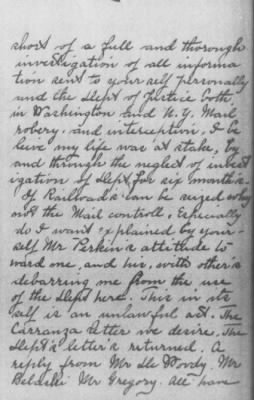 short of a full and thorough
investigation of all informa
tion sent to your self personally
and the Dept of Justice both
in Washington and N.Y. Mail
robery. and interception. I be
leive my life was at stake, by
and through the neglect of invest
igation of Dept for six months.
If Railroads can be seized why
not the Mail controll. Especially
do I want explained by your-
self Mr Perkin's attitude to
ward me, and his, with other's
debarring me from the use
of the Dept here. This in its
self is an unlawful act. The
Carranza letter we desire. The
Dept's letter's returned. A
reply from Mr De Woody. Mr
Mr Gregory. all have